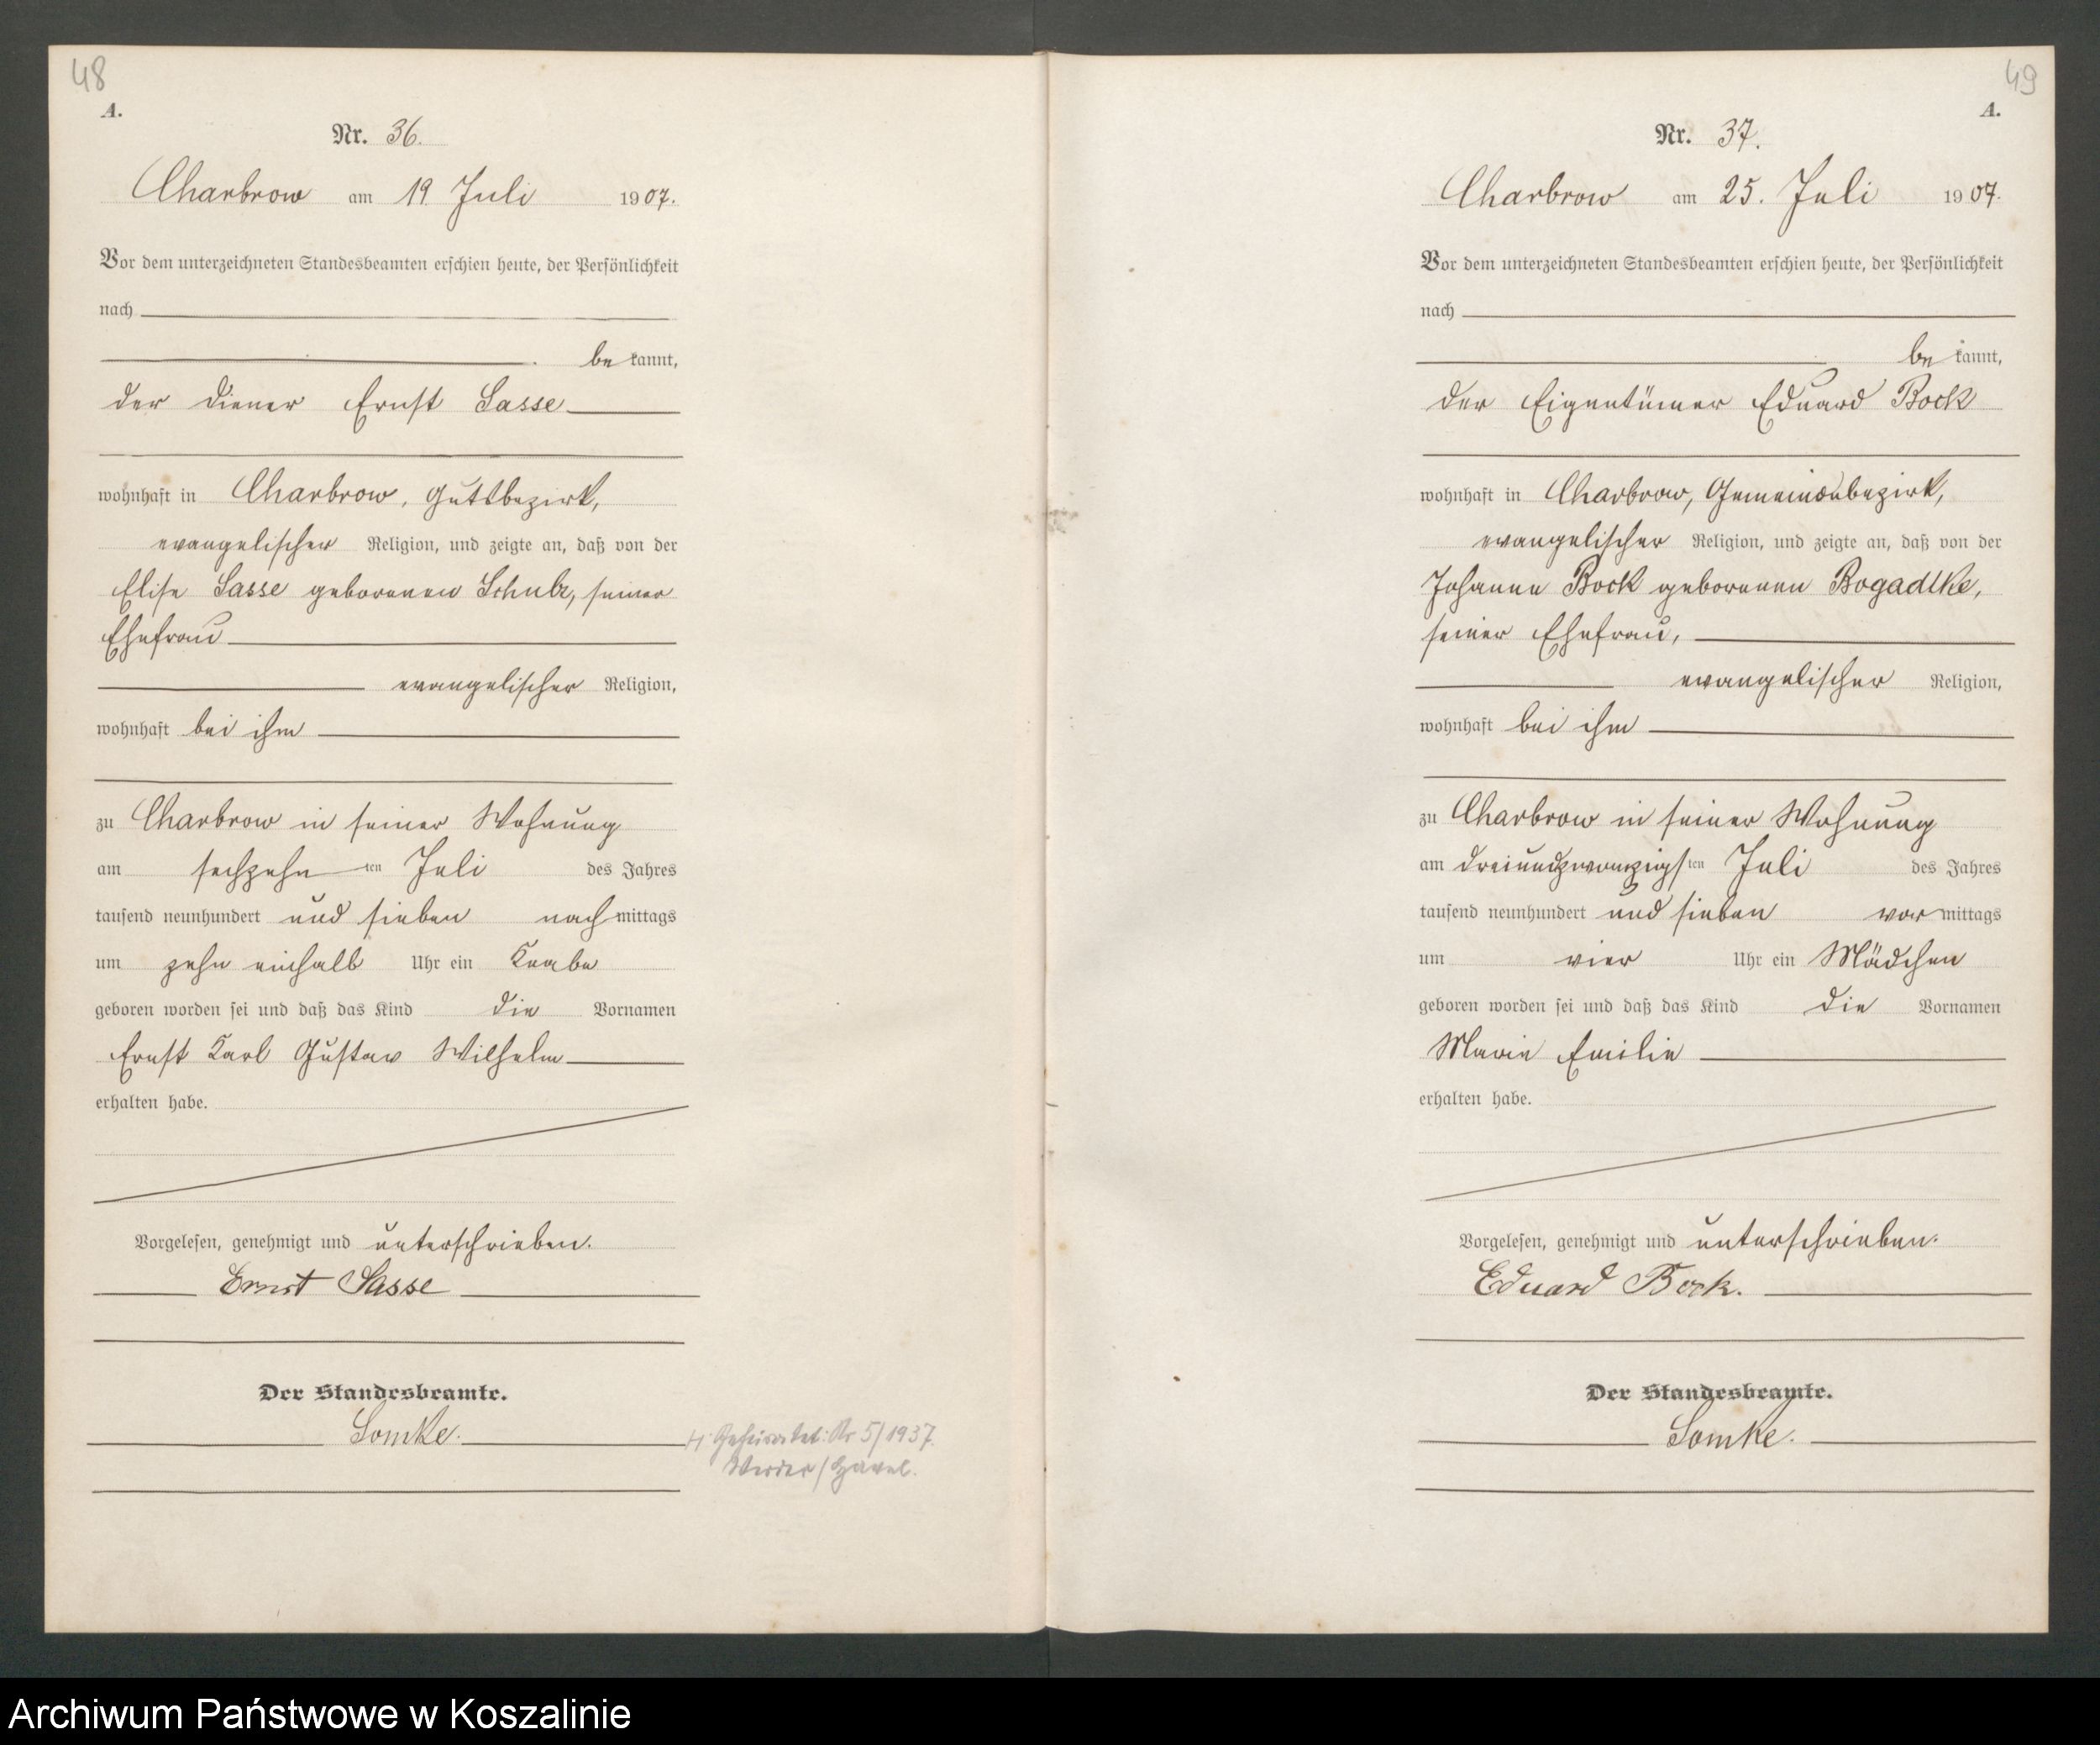 48
A.
Nr. 36.
Charbrow am 19 Juli 1907.
Vor dem unterzeichneten Standesbeamten erschien heute, der Persönlichkeit
nach
bekannt,
der Diener Ernst Sasse
wohnhaft in Charbrow, Gutsbezirk,
evangelischer Religion, und zeigte an, daß von der
Elise Sasse geborenen Schulz, seiner
Ehefrau
evangelischer Religion,
wohnhaft bei ihm
zu Charbrow in seiner Wohnung
am sechzehnten Juli des Jahres
tausend neunhundert und sieben nachmittags
um zehn einhalb Uhr ein Knabe
geboren worden sei und daß das Kind die Vornamen
Ernst Karl Gustav Wilhelm
erhalten habe.
Vorgelesen, genehmigt und unterschrieben.
Ernst Sasse
Der Standesbeamte.
Lomke.
H: Geheiratet: Nr 5/1937.
Werder/Havel.
49
A.
Nr. 37.
Charbrow am 25. Juli 1907.
Vor dem unterzeichneten Standesbeamten erschien heute, der Persönlichkeit
nach
bekannt,
der Eigentümer Eduard Bock
wohnhaft in Charbrow, Gemeindebezirk,
evangelischer Religion, und zeigte an, daß von der
Johanne Bock geborenen Bogadtke,
seiner Ehefrau,
evangelischer Religion,
wohnhaft bei ihm
zu Charbrow in seiner Wohnung
am dreiundzwanzigsten Juli des Jahres
tausend neunhundert und sieben vormittags
um vier Uhr ein Mädchen
geboren worden sei und daß das Kind die Vornamen
Marie Emilie
erhalten habe.
Vorgelesen, genehmigt und unterschrieben.
Eduard Bock.
Der Standesbeamte.
Lomke.
Archiwum Państwowe w Koszalinie